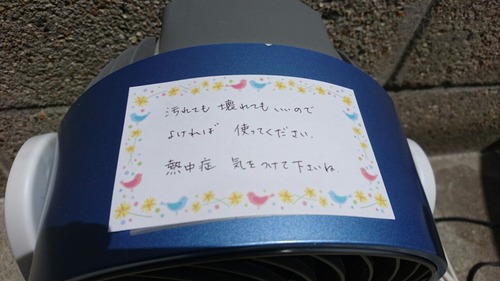 汚れても 壊れても いいので
よければ 使ってください.
熱中症 気をつけて下さいね.